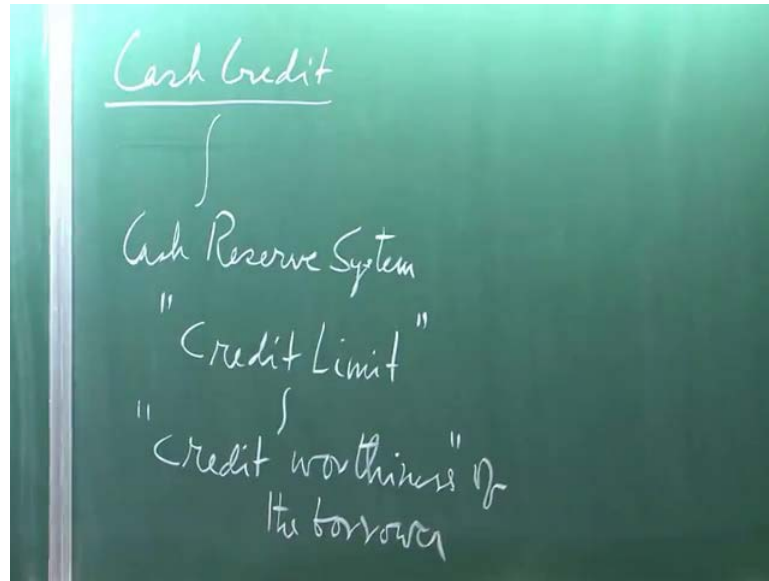 Cash Credit
Cash Reserve System
"Credit Limit"
"Credit worthiness" of
the borrower